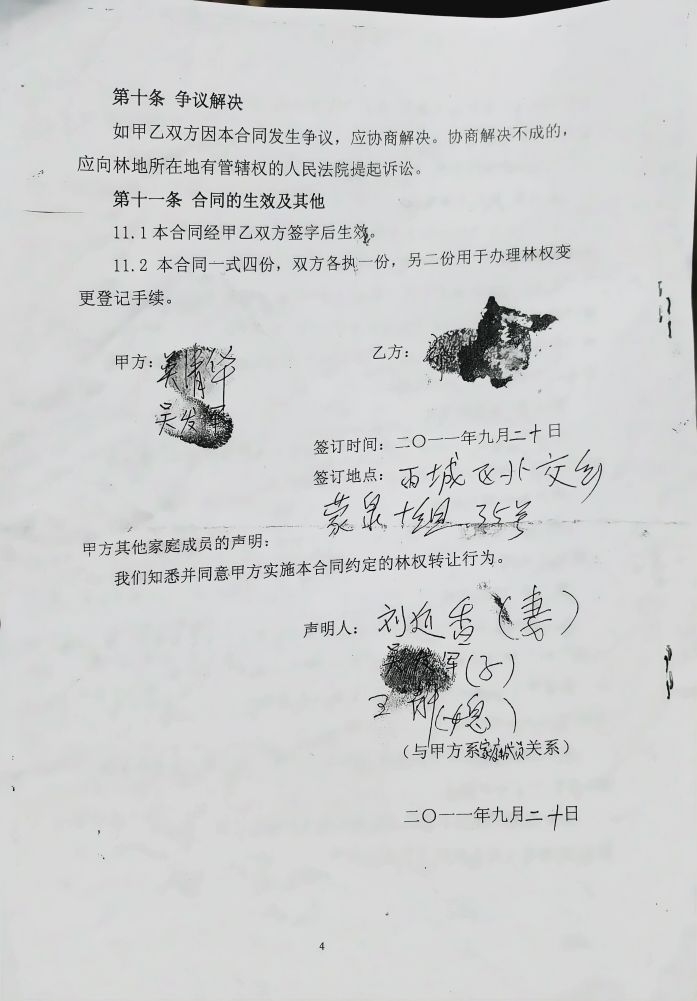 第十条 争议解决
如甲乙双方因本合同发生争议，应协商解决。协商解决不成的，
应向林地所在地有管辖权的人民法院提起诉讼。
第十一条 合同的生效及其他
11.1 本合同经甲乙双方签字后生效。
11.2 本合同一式四份，双方各执一份，另二份用于办理林权变
更登记手续。
甲方：吴清华
吴发军
乙方：
签订时间：二〇一一年九月二十日
签订地点：雨城区北交乡
蒙泉十组35号
甲方其他家庭成员的声明：
我们知悉并同意甲方实施本合同约定的林权转让行为。
声明人：刘 香（妻）
吴 军（子）
王 （媳）
（与甲方系家庭成员关系）
二〇一一年九月二十日
4